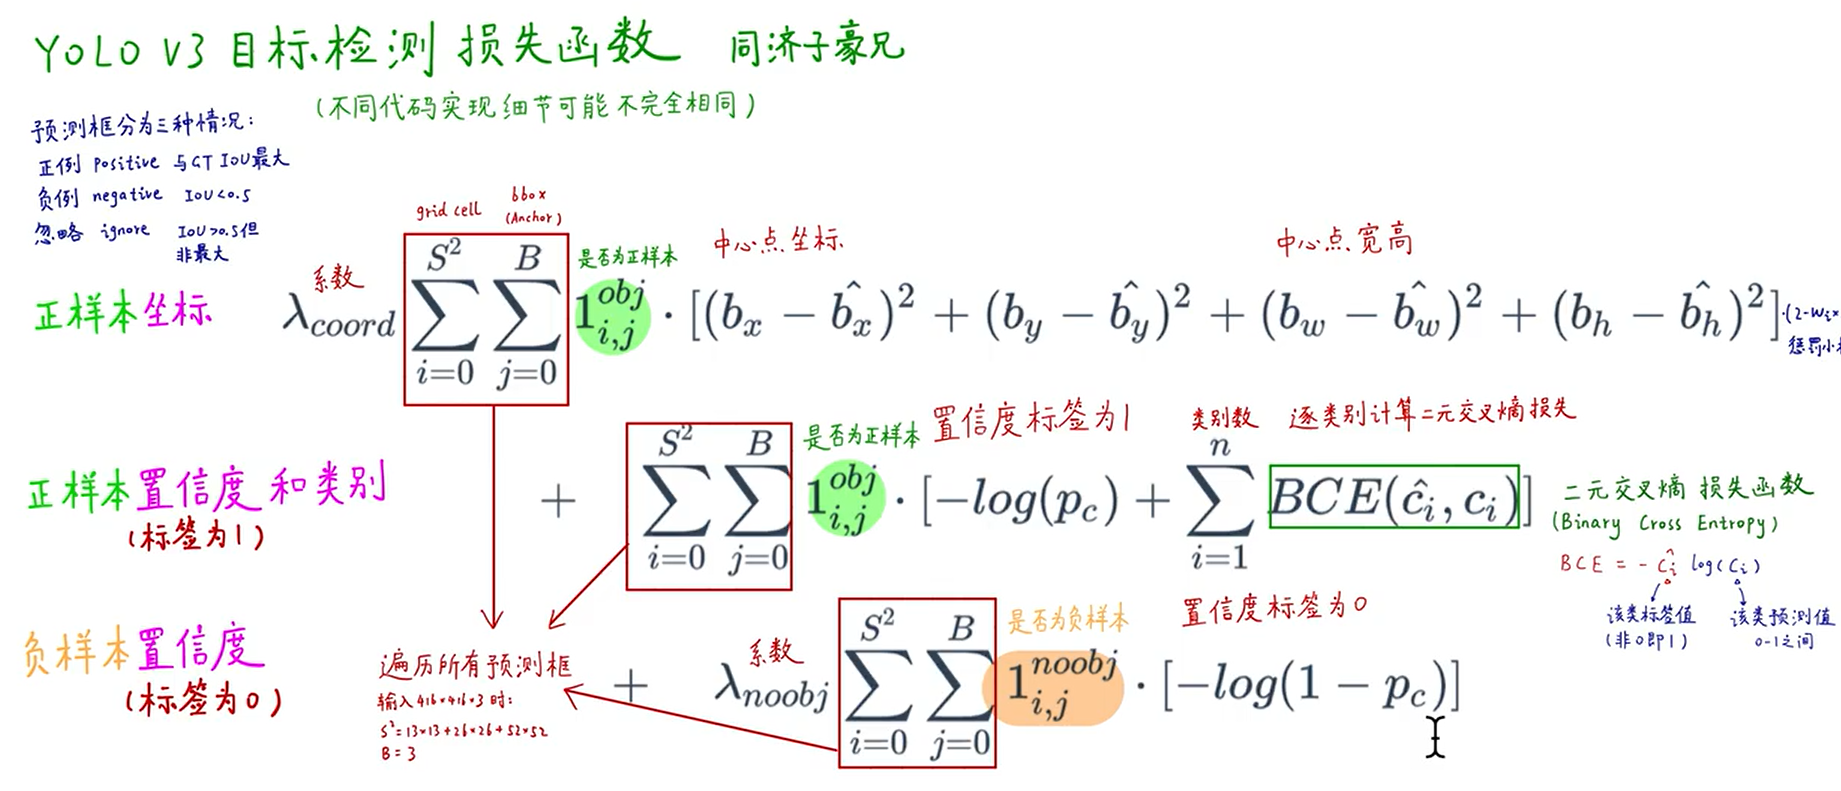 YOLO V3 目标检测 损失函数 同济子豪兄
(不同代码实现细节可能不完全相同)
预测框分为三种情况:
正例 positive 与GT IoU最大
负例 negative IoU<0.5
忽略 ignore IoU>0.5但
非最大
grid cell
bbox
(Anchor)
正样本坐标
系数
是否为正样本
中心点坐标
中心点宽高
λ_{coord} \sum_{i=0}^{S^2} \sum_{j=0}^{B} 1_{i,j}^{obj} · [(b_x − \hat{b_x})^2 + (b_y − \hat{b_y})^2 + (b_w − \hat{b_w})^2 + (b_h − \hat{b_h})^2]·(2-wᵢ×
惩罚小
正样本置信度和类别
(标签为1)
是否为正样本
置信度标签为1
类别数
逐类别计算二元交叉熵损失
+ \sum_{i=0}^{S^2} \sum_{j=0}^{B} 1_{i,j}^{obj} · [−log(p_c) + \sum_{i=1}^{n} BCE(\hat{c}_i, c_i)]
二元交叉熵 损失函数
(Binary Cross Entropy)
BCE = - \hat{c}_i log(c_i)
该类标签值
(非0即1)
该类预测值
0-1之间
负样本置信度
(标签为0)
遍历所有预测框
输入416×416×3时:
S²=13×13+26×26+52×52
B=3
系数
是否为负样本
置信度标签为0
+ λ_{noobj} \sum_{i=0}^{S^2} \sum_{j=0}^{B} 1_{i,j}^{noobj} · [−log(1 − p_c)]